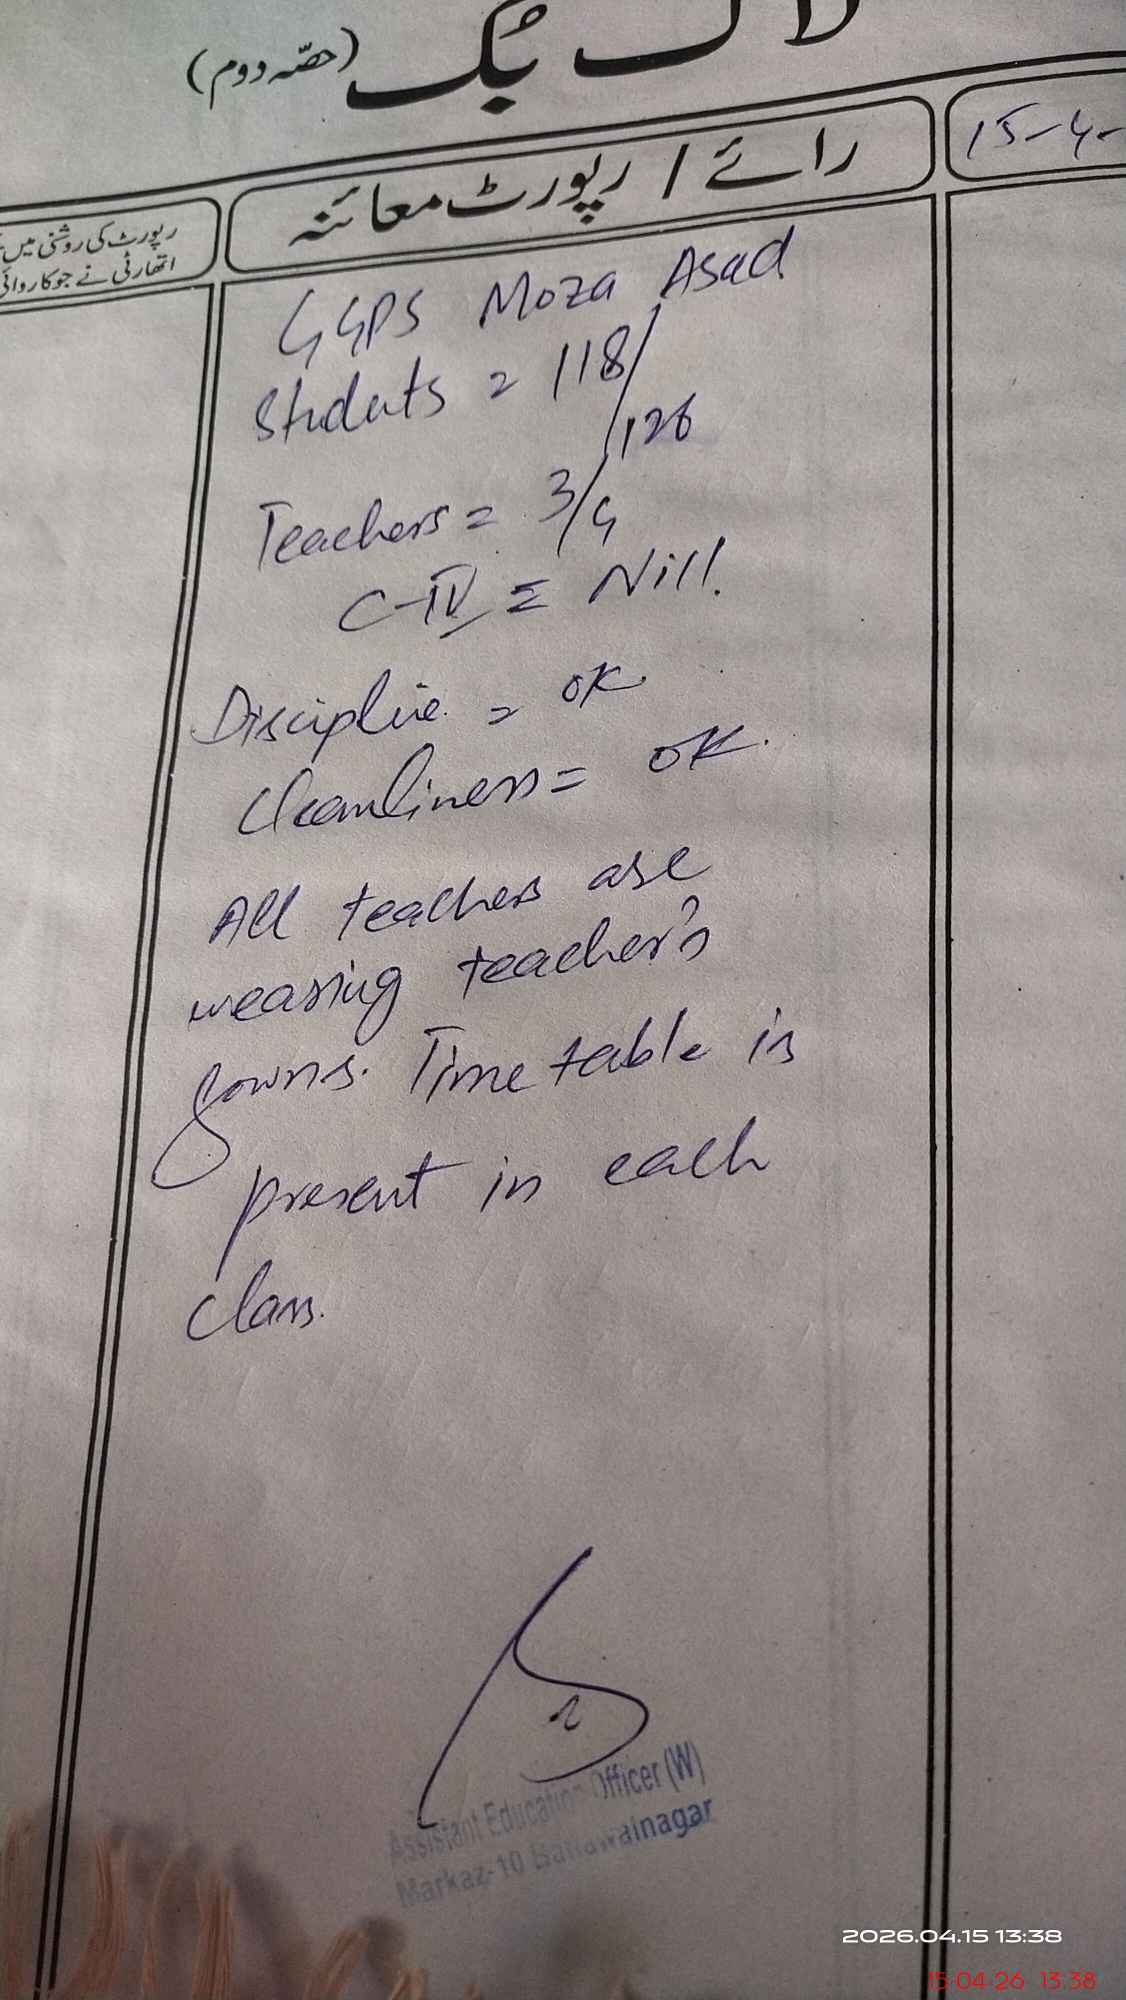 لاگ بُک (حصّہ دوم)
15-4-
رائے / رپورٹ معائنہ
رپورٹ کی روشنی میں
اتھارٹی نے جو کاروائی
GGPS Moza Asad
Students = 118/126
Teachers = 3/4
C-IV = Nill.
Discipline = ok.
Cleanliness = ok.
All teachers are
wearing teacher's
gowns. Time table is
present in each
class.
Assistant Education Officer (W)
Markaz-10 Bahawalnagar
2026.04.15 13:38
15-04-26 13:38